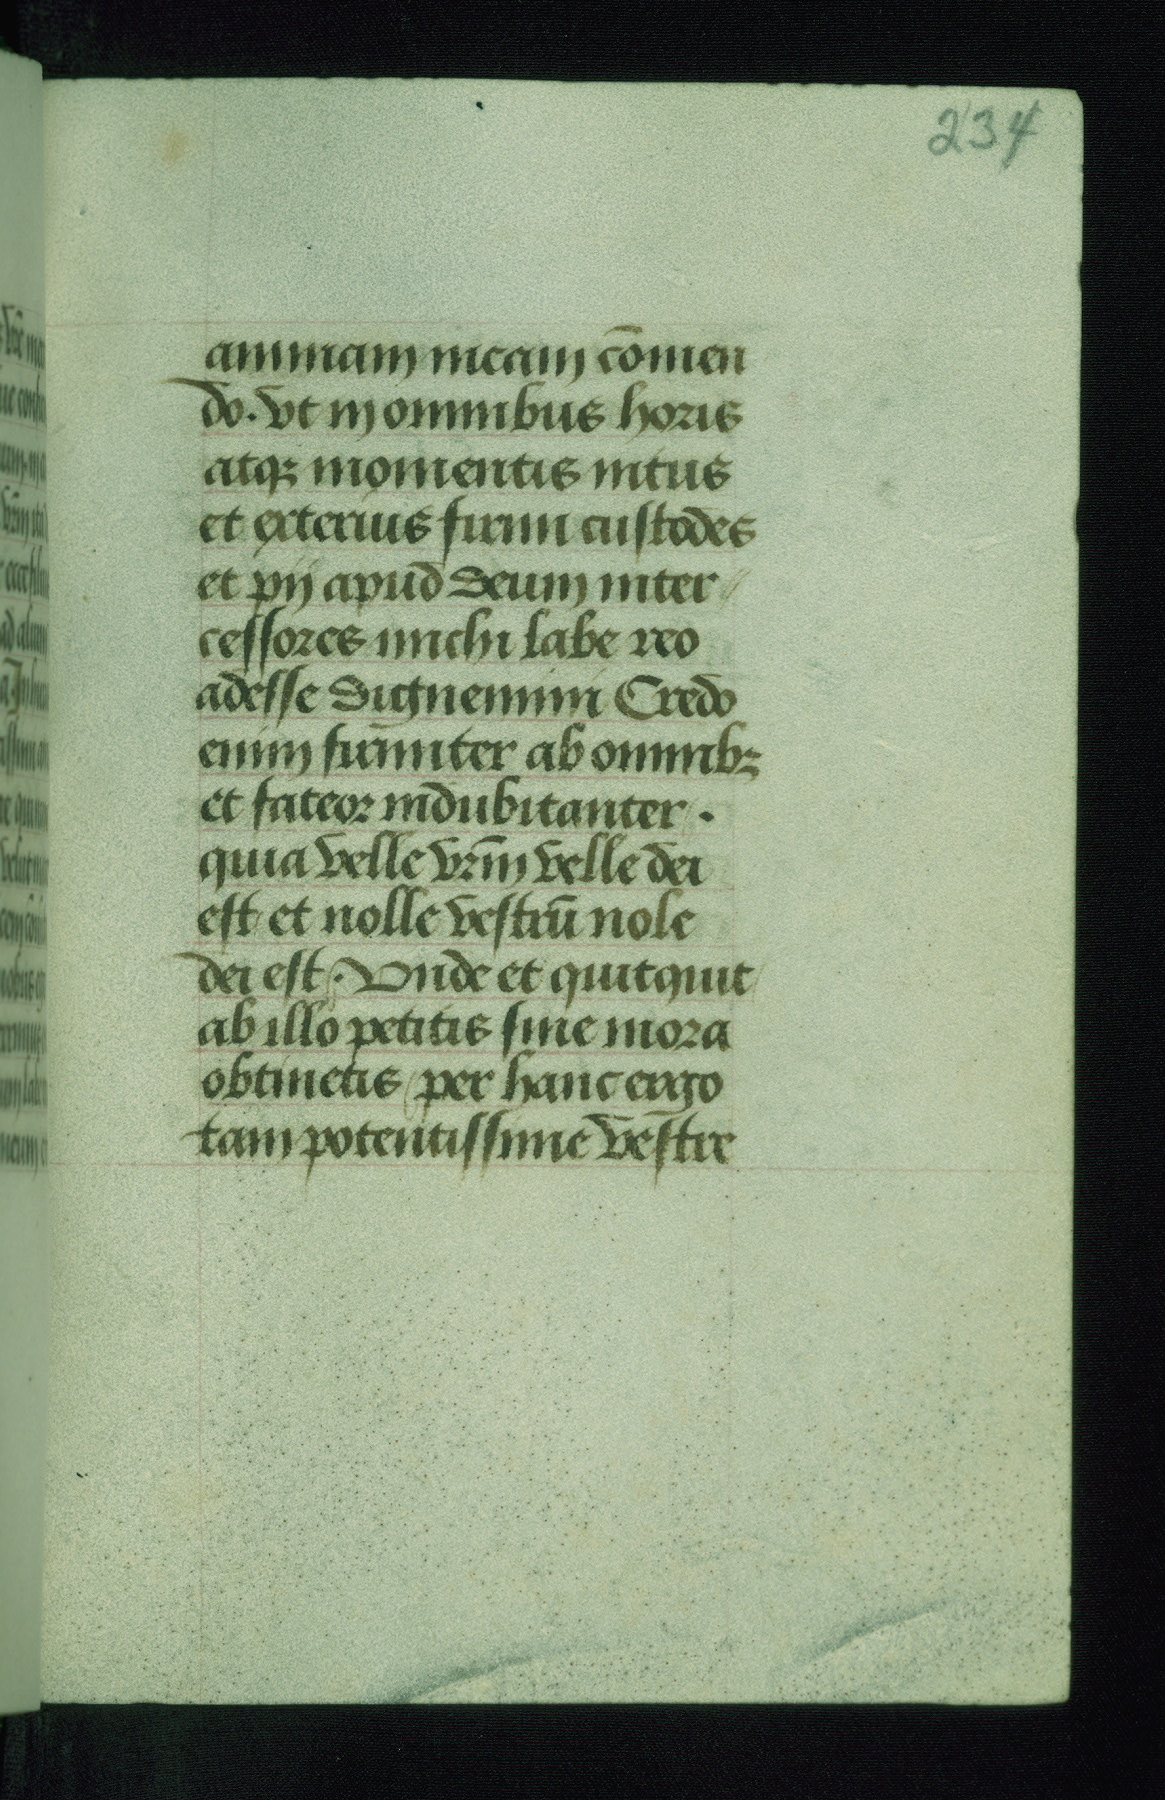 234
animam meam cōmen
do. vt in omnibus horis
atqꝫ momentis intus
et exterius firmi custodes
et pij apud deum inter
cessores michi labe reo
adesse dignemini Credo
enim firmiter ab omnibꝫ
et fateor indubitanter.
quia velle vr̄m velle dei
est et nolle vestrū nole
dei est. Unde et quitquit
ab illo petitis sine mora
obtinetis per hanc ergo
tam potentissime vestre